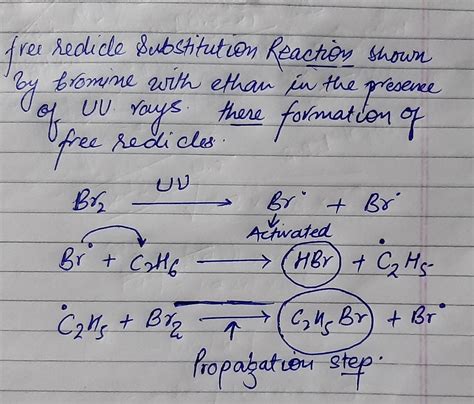 free redicle Substitution Reaction shown
by bromine with ethan in the presence
of UV rays. there formation of
free redicles.
Br₂ UV⟶ Br• + Br•
Activated
Br• + C₂H₆ ⟶ HBr + •C₂H₅
•C₂H₅ + Br₂ ⟶ C₂H₅Br + Br•
Propagation step.